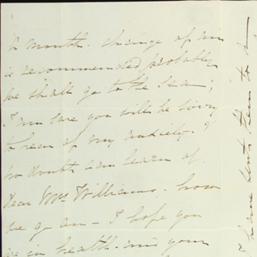 a month. change of air
is recommended probably
we shall go to the Sea;
I am sure you will be sorry
to hear of my anxiety. I
no doubt can learn of
dear Mrs Williams. how
we go on - I hope you
are in health and your